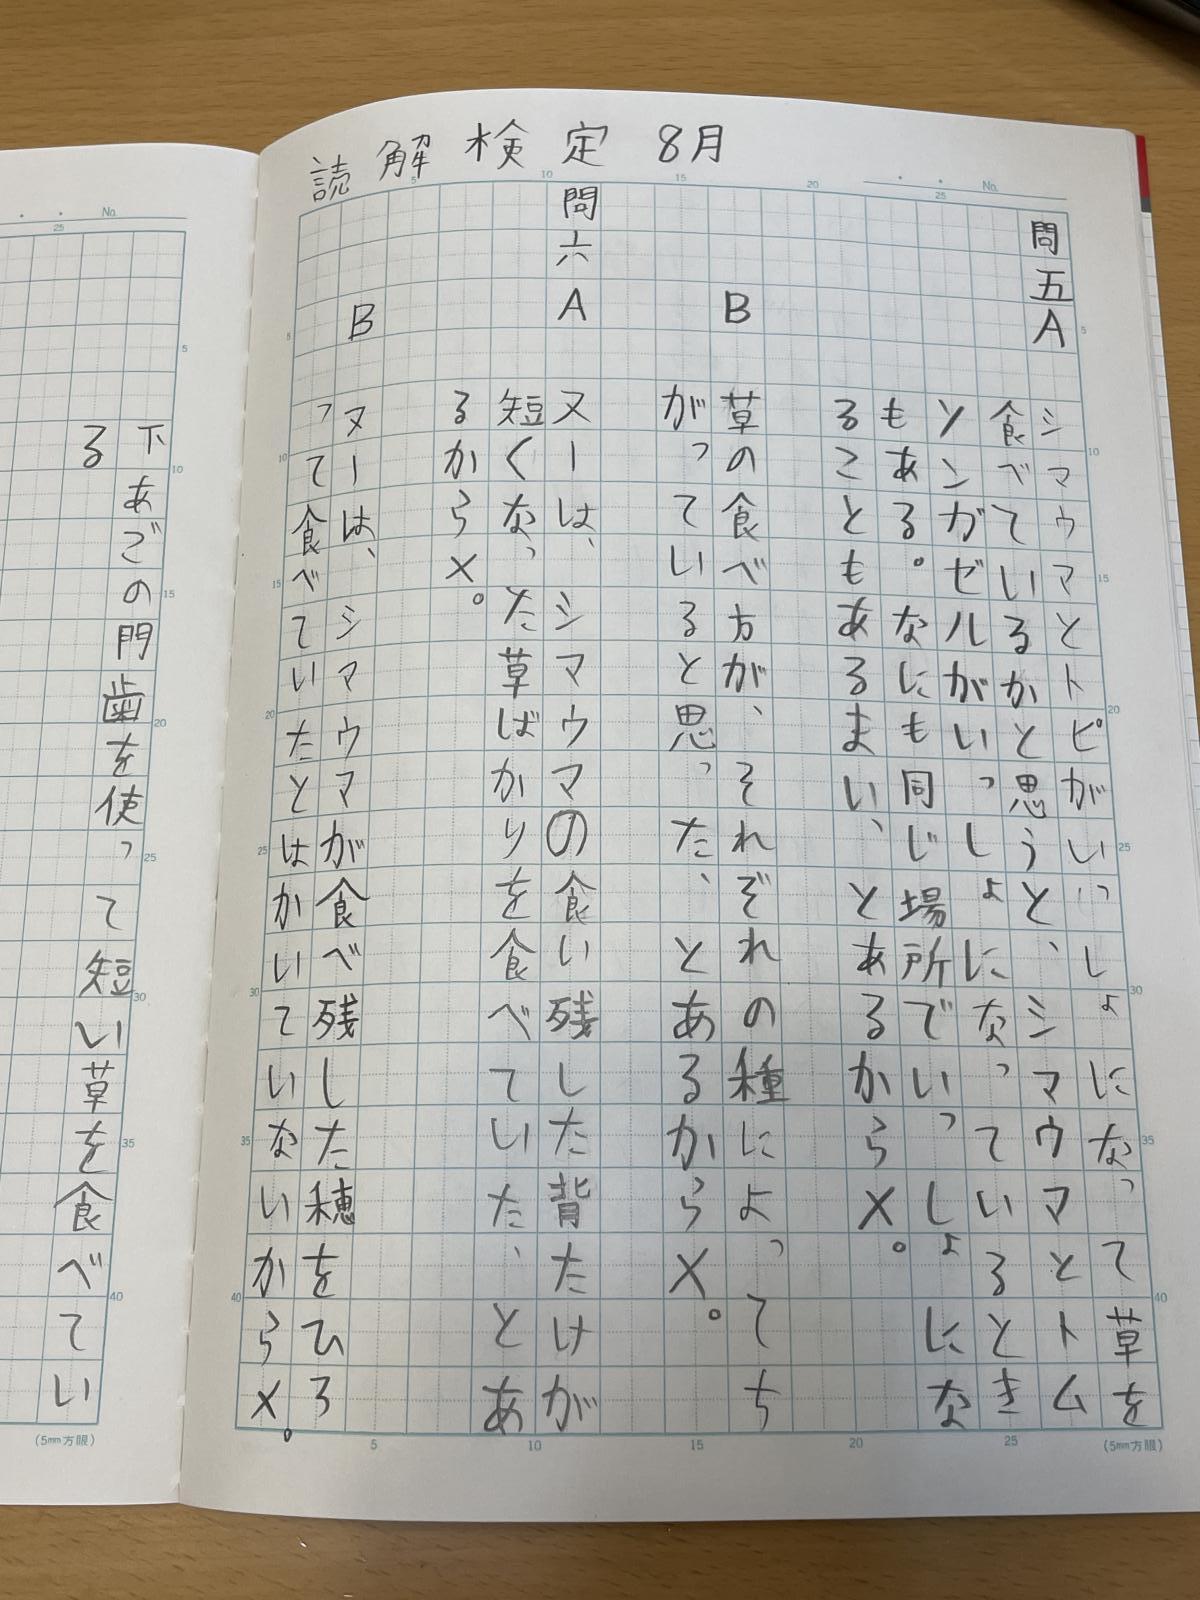 読解検定 8月
問五A
シマウマとトピがいっしょになって草を
食べているかと思うと、シマウマとトム
ソンガゼルがいっしょになっているとき
もある。なにも同じ場所でいっしょにな
ることもあるまい、とあるから×。
B
草の食べ方が、それぞれの種によってち
がっていると思った、とあるから×。
問六A
ヌーは、シマウマの食い残した背たけが
短くなった草ばかりを食べていた、とあ
るから×。
B
ヌーは、シマウマが食べ残した穂をひろ
って食べていたとはかいていないから×。
下あごの門歯を使って短い草を食べてい
る
No.
No.
5
10
15
20
25
5
10
15
20
25
30
35
40
5
10
15
20
25
30
35
40
5
10
15
20
25
(5mm方眼)
25
5
10
15
20
25
30
35
40
(5mm方眼)